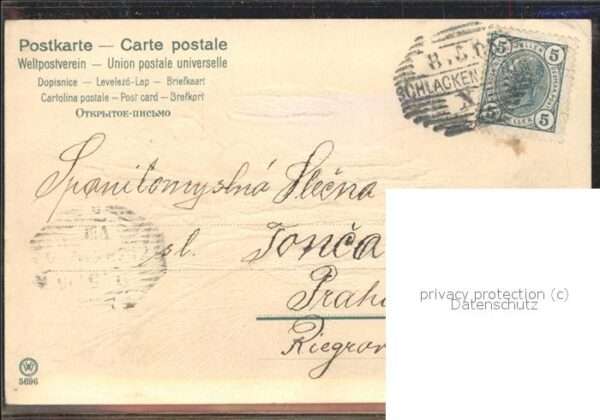 Postkarte — Carte postale
Weltpostverein — Union postale universelle
Dopisnice — Levelező-Lap — Briefkaart
Cartolina postale — Post card — Brefkort
Открытое-письмо
8.5
SCHLACKEN
X
5 5
HELLER
5 5
Spanilomyslná Slečna
sl. Tonča
Praha
Riegrov
privacy protection (c)
Datenschutz
W
5696